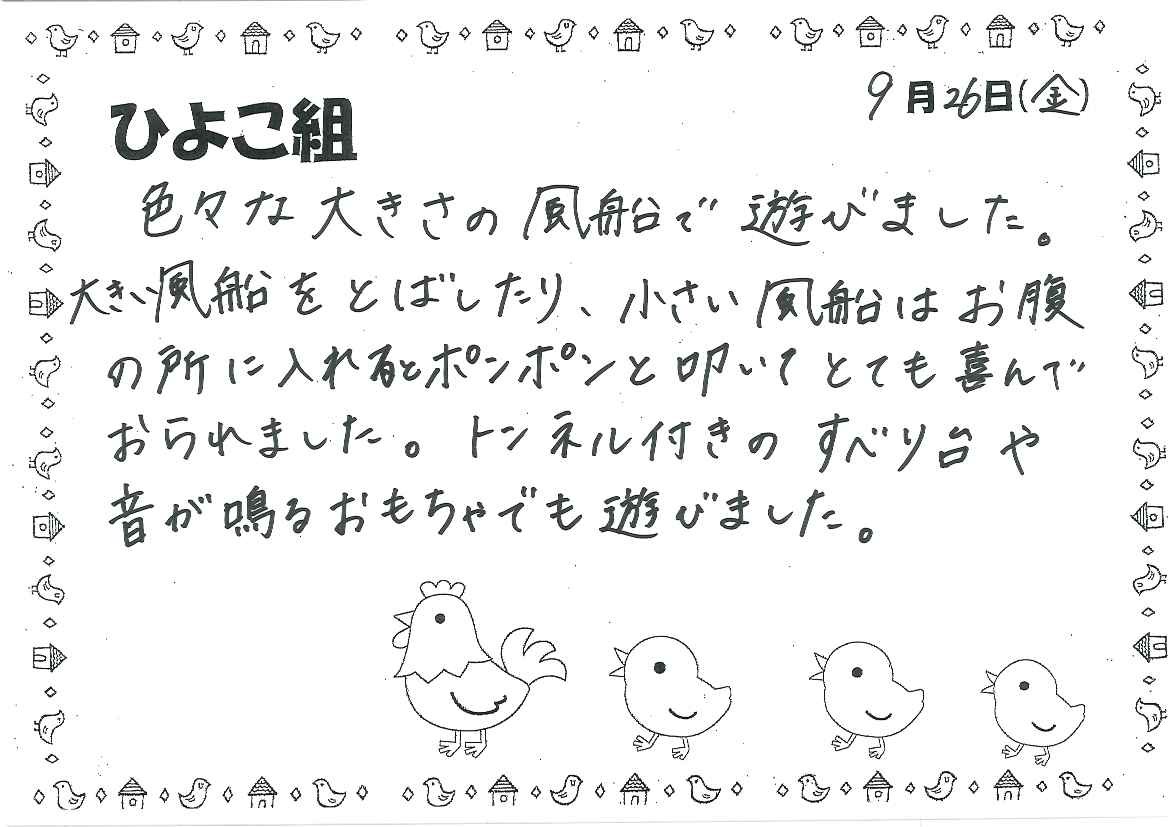 9月26日(金)
ひよこ組
色々な大きさの風船で遊びました。
大きい風船をとばしたり、小さい風船はお腹
の所に入れるとポンポンと叩いてとても喜んで
おられました。トンネル付きのすべり台や
音が鳴るおもちゃでも遊びました。